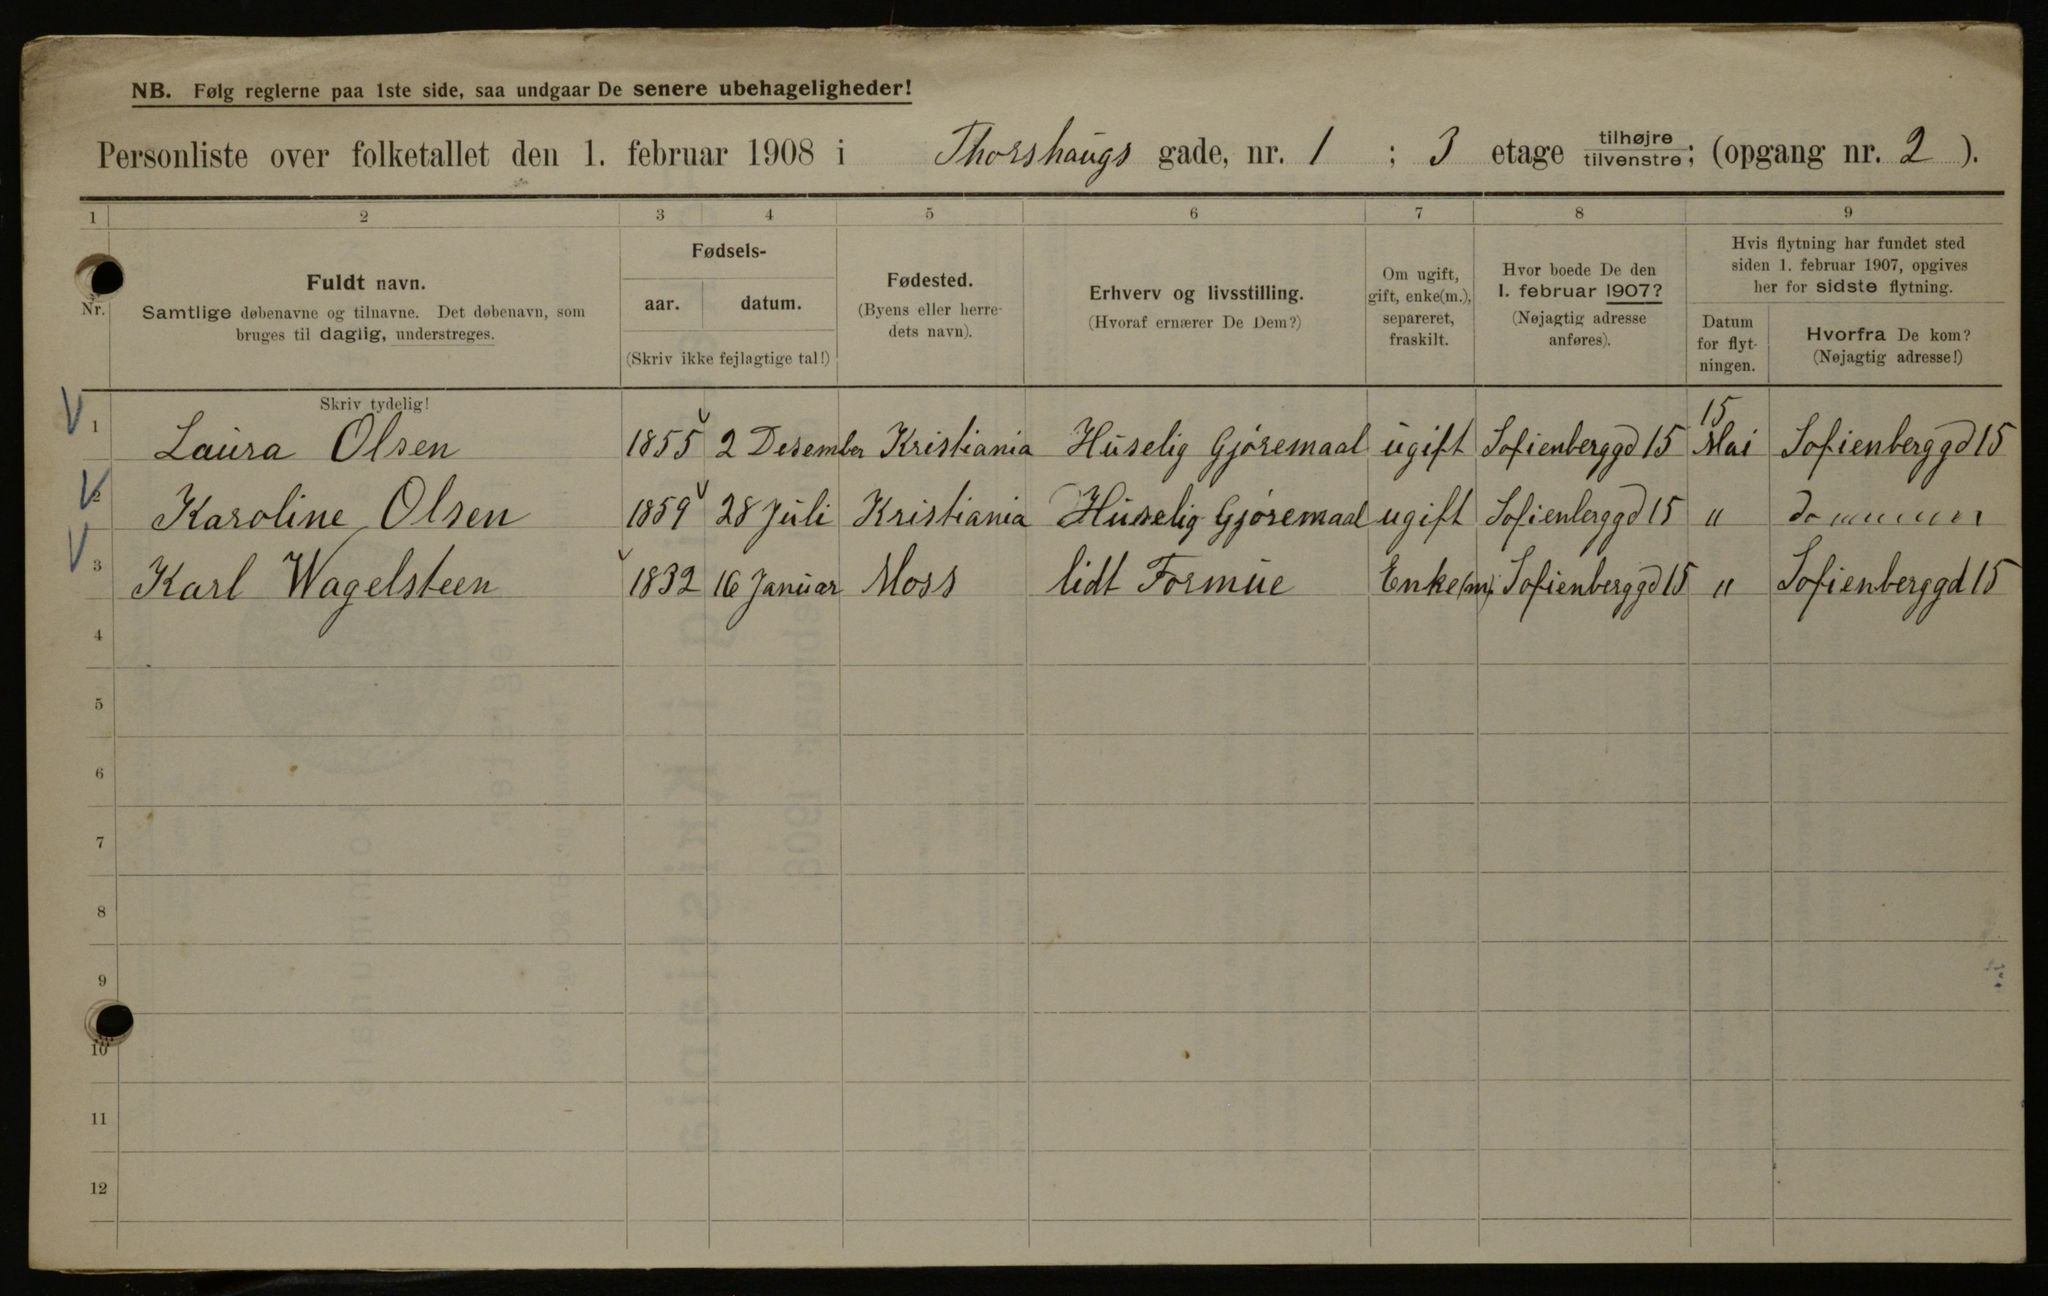 NB. Følg reglerne paa 1ste side, saa undgaar De senere ubehageligheder!
Personliste over folketallet den 1. februar 1908 i Thorshaugs gade, nr. 1 ; 3 etage tilhøjre/tilvenstre; (opgang nr. 2 ).
1 2 3 4 5 6 7 8 9
Nr.
Fuldt navn.
Samtlige døbenavne og tilnavne. Det døbenavn, som
bruges til daglig, understreges.
Fødsels-
aar. datum.
(Skriv ikke fejlagtige tal!)
Fødested.
(Byens eller herre-
dets navn).
Erhverv og livsstilling.
(Hvoraf ernærer De Dem?)
Om ugift,
gift, enke(m.),
separeret,
fraskilt.
Hvor boede De den
1. februar 1907?
(Nøjagtig adresse
anføres).
Hvis flytning har fundet sted
siden 1. februar 1907, opgives
her for sidste flytning.
Datum
for flyt-
ningen.
Hvorfra De kom?
(Nøjagtig adresse!)
Skriv tydelig!
1 Laura Olsen 1855 2 Desember Kristiania Huselig Gjøremaal ugift Sofienberggd 15 15 Mai Sofienberggd 15
2 Karoline Olsen 1859 28 Juli Kristiania Huselig Gjøremaal ugift Sofienberggd 15 "
3 Karl Wagelsteen 1832 16 Januar Moss lidt Formue Enke(m). Sofienberggd 15 " Sofienberggd 15
4
5
6
7
8
9
10
11
12